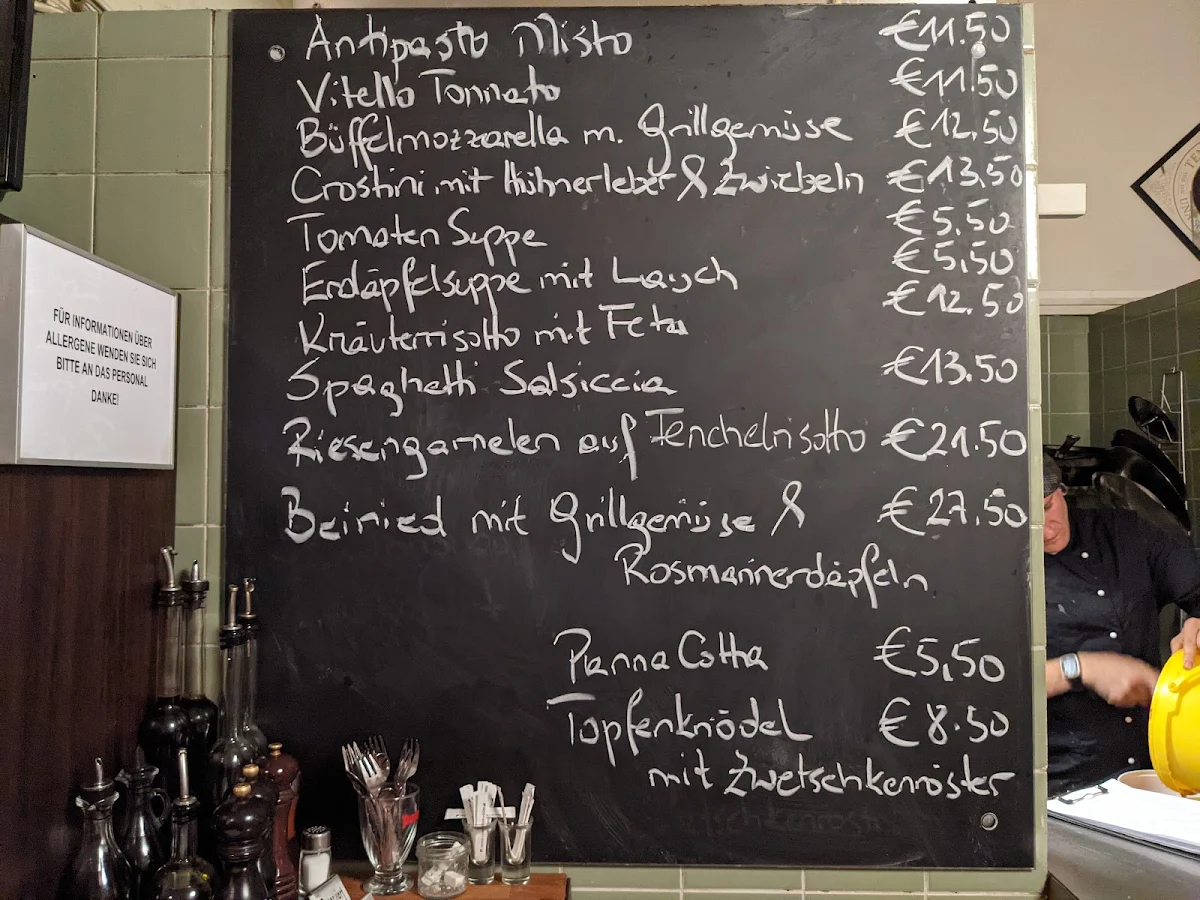 Antipasto Misto €11.50
Vitello Tonnato €11.50
Büffelmozzarella m. Grillgemüse €12.50
Crostini mit Hühnerleber & Zwiebeln €13.50
Tomaten Suppe €5.50
Erdäpfelsuppe mit Lauch €5,50
Kräuterrisotto mit Feta €12.50
Spaghetti Salsiccia €13.50
Riesengarnelen auf Fenchelrisotto €21.50
Beiried mit Grillgemüse & €27.50
Rosmarinerdäpfeln
Panna Cotta €5,50
Topfenknödel €8.50
mit Zwetschkenröster
FÜR INFORMATIONEN ÜBER
ALLERGENE WENDEN SIE SICH
BITTE AN DAS PERSONAL
DANKE!